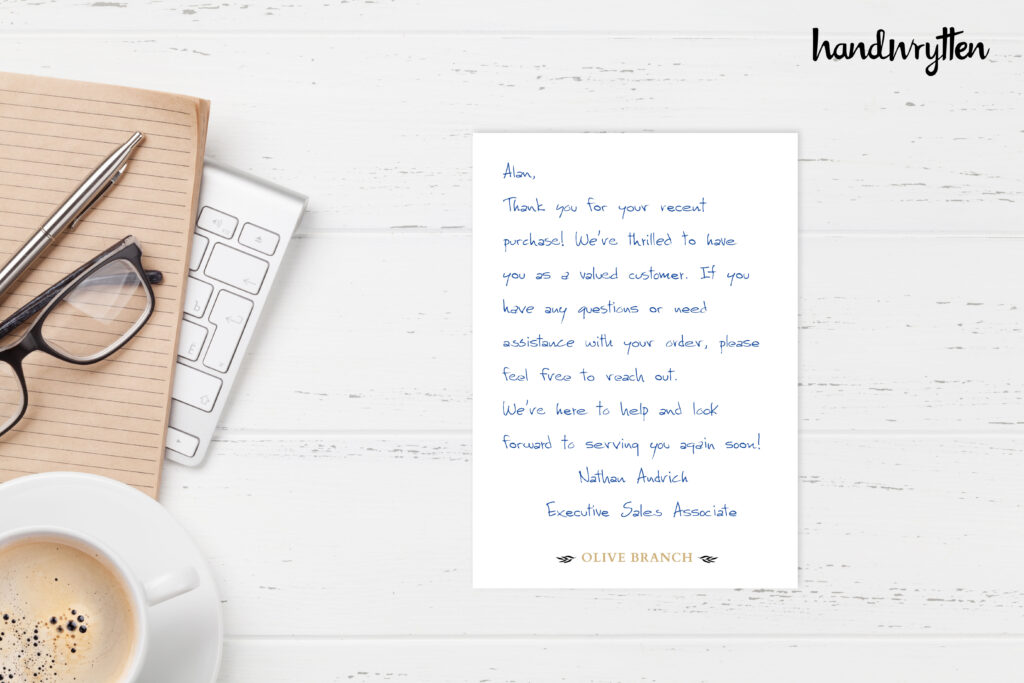 handwrytten
Alan,
Thank you for your recent
purchase! We've thrilled to have
you as a valued customer. If you
have any questions or need
assistance with your order, please
feel free to reach out.
We've here to help and look
forward to serving you again soon!
Nathan Andrich
Executive Sales Associate
OLIVE BRANCH